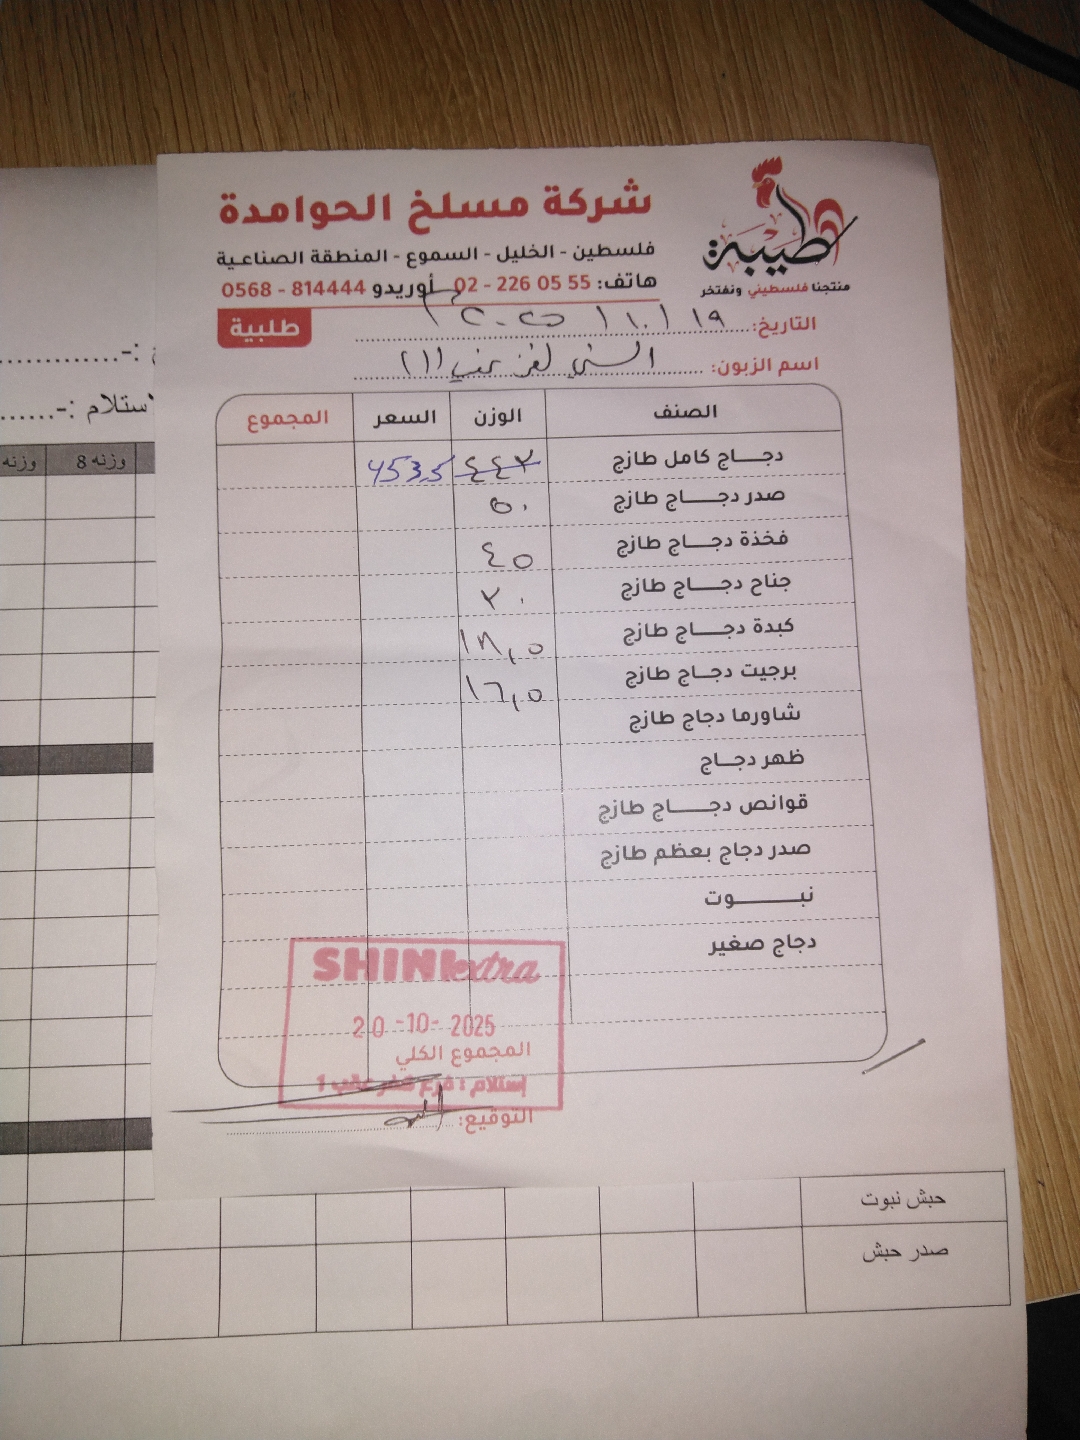 طيبة
منتجنا فلسطيني ونفتخر
شركة مسلخ الحوامدة
فلسطين - الخليل - السموع - المنطقة الصناعية
هاتف: 02 - 226 05 55 أوريدو 0568 - 814444
طلبية
التاريخ: ١٩ / ١٠ / ٢٠٢٥
اسم الزبون: الشني كفر عقب (١)
الصنف الوزن السعر المجموع
دجاج كامل طازج ٤٤٢ 453,5
صدر دجاج طازج ٥٠
فخذة دجاج طازج ٤٥
جناح دجاج طازج ٢٠
كبدة دجاج طازج ١٨,٥
برجيت دجاج طازج ١٦,٥
شاورما دجاج طازج
ظهر دجاج
قوانص دجاج طازج
صدر دجاج بعظم طازج
نبوت
دجاج صغير
SHINI extra
20-10-2025
المجموع الكلي
إستلام : فرع كفر عقب 1
التوقيع:
:-
استلام :-
وزنه 8 وزنه
حبش نبوت
صدر حبش